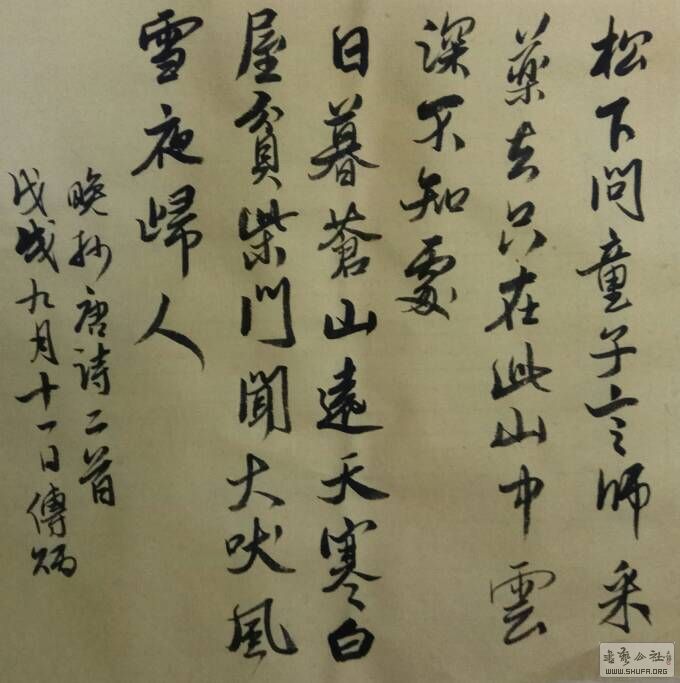 松下問童子言師采
藥去只在此山中雲
深不知處
日暮蒼山遠天寒白
屋貧柴門聞大吠風
雪夜歸人
晚抄唐詩二首
戊戌九月十一日傅炳
书艺公社
WWW.SHUFA.ORG